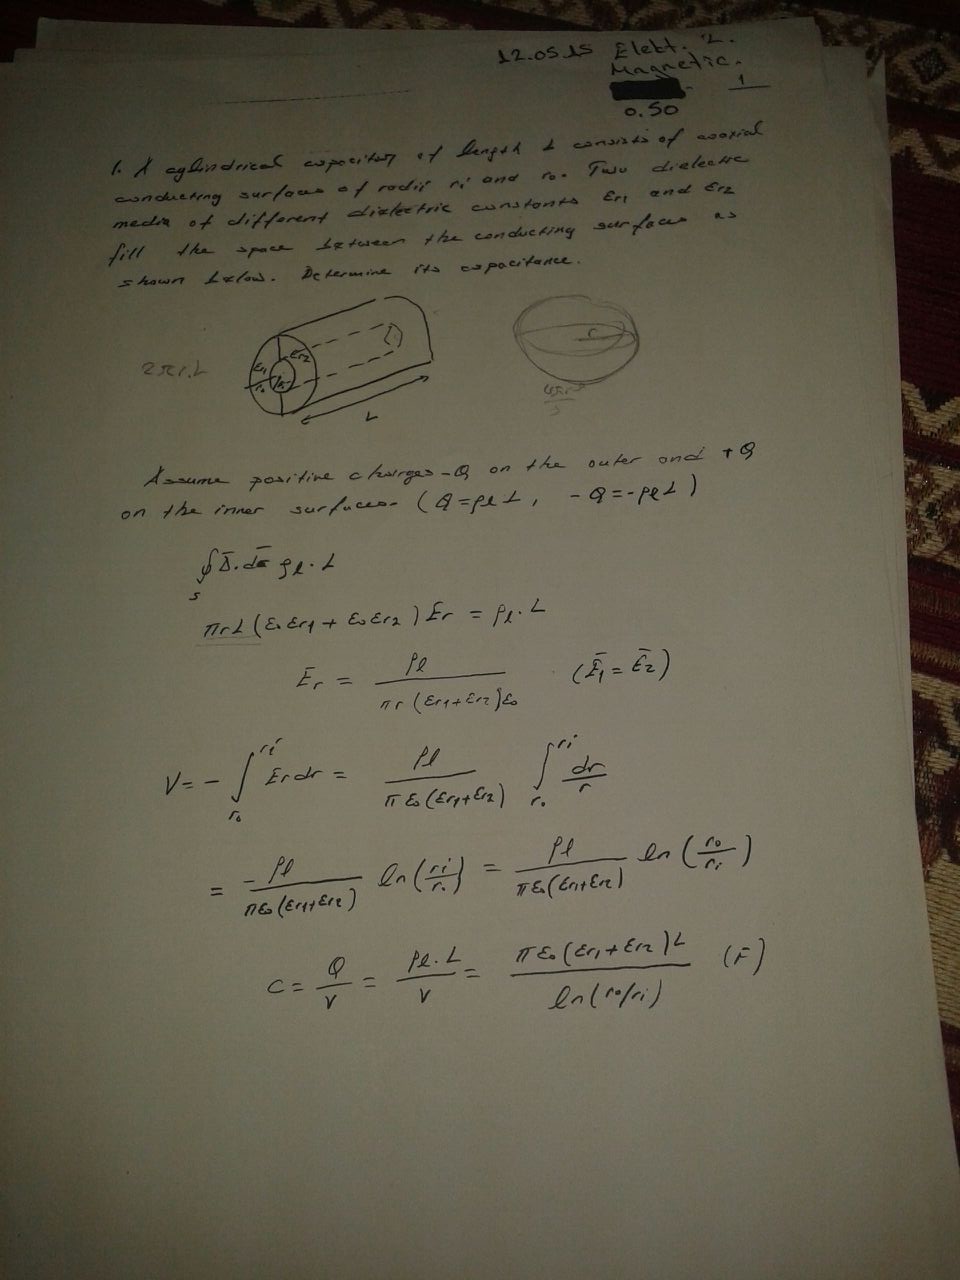 12.05.15 Elekt. 2.
Magnetic.
1
0.50
1. A cylindrical capacitor of length L consists of coaxial
conducting surfaces of radii ri and ro. Two dielectric
media of different dielectric constants εr1 and εr2
fill the space between the conducting surfaces as
shown below. Determine its capacitance.
2πr.L
εr1 εr2
ro ri
L
r
4πr³/3
Assume positive charges -Q on the outer and +Q
on the inner surfaces. (Q=ρℓL, -Q=-ρℓL)
∮s D̄.ds̄ ρℓ.L
πrL(ε₀εr1+ε₀εr2)Er = ρℓ.L
Ēr = ρℓ / πr(εr1+εr2)ε₀ (Ē1=Ē2)
V= - ∫ro^ri Erdr = ρℓ / πε₀(εr1+εr2) ∫ro^ri dr/r
= -ρℓ / πε₀(εr1+εr2) ln(ri/ro) = ρℓ / πε₀(εr1+εr2) ln(ro/ri)
C= Q/V = ρℓ.L/V = πε₀(εr1+εr2)L / ln(ro/ri) (F)